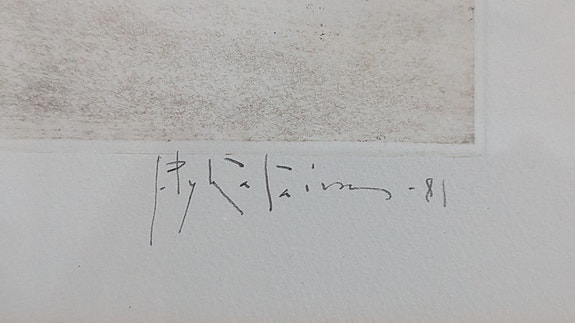 Pykäläinen -81